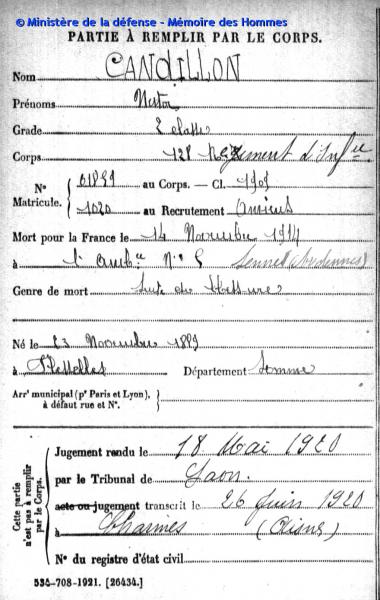 © Ministère de la défense - Mémoire des Hommes
PARTIE À REMPLIR PAR LE CORPS.
Nom CANDILLON
Prénoms Nestor
Grade 2e classe
Corps 128 Régiment d'Infie
N° Matricule. 01899 au Corps. — Cl. 1909
1020 au Recrutement Amiens
Mort pour la France le 14 Novembre 1914
à l'Ambce N° 5
Genre de mort Suite de blessures
Né le 23 Novembre 1889
à Flesselles Département Somme
Arrt municipal (pr Paris et Lyon), à défaut rue et N°.
Cette partie n'est pas à remplir par le Corps.
Jugement rendu le 18 Mai 1920
par le Tribunal de Laon.
acte ou jugement transcrit le 26 juin 1920
à Charmes (Aisne)
N° du registre d'état civil
534-708-1921. [26434.]